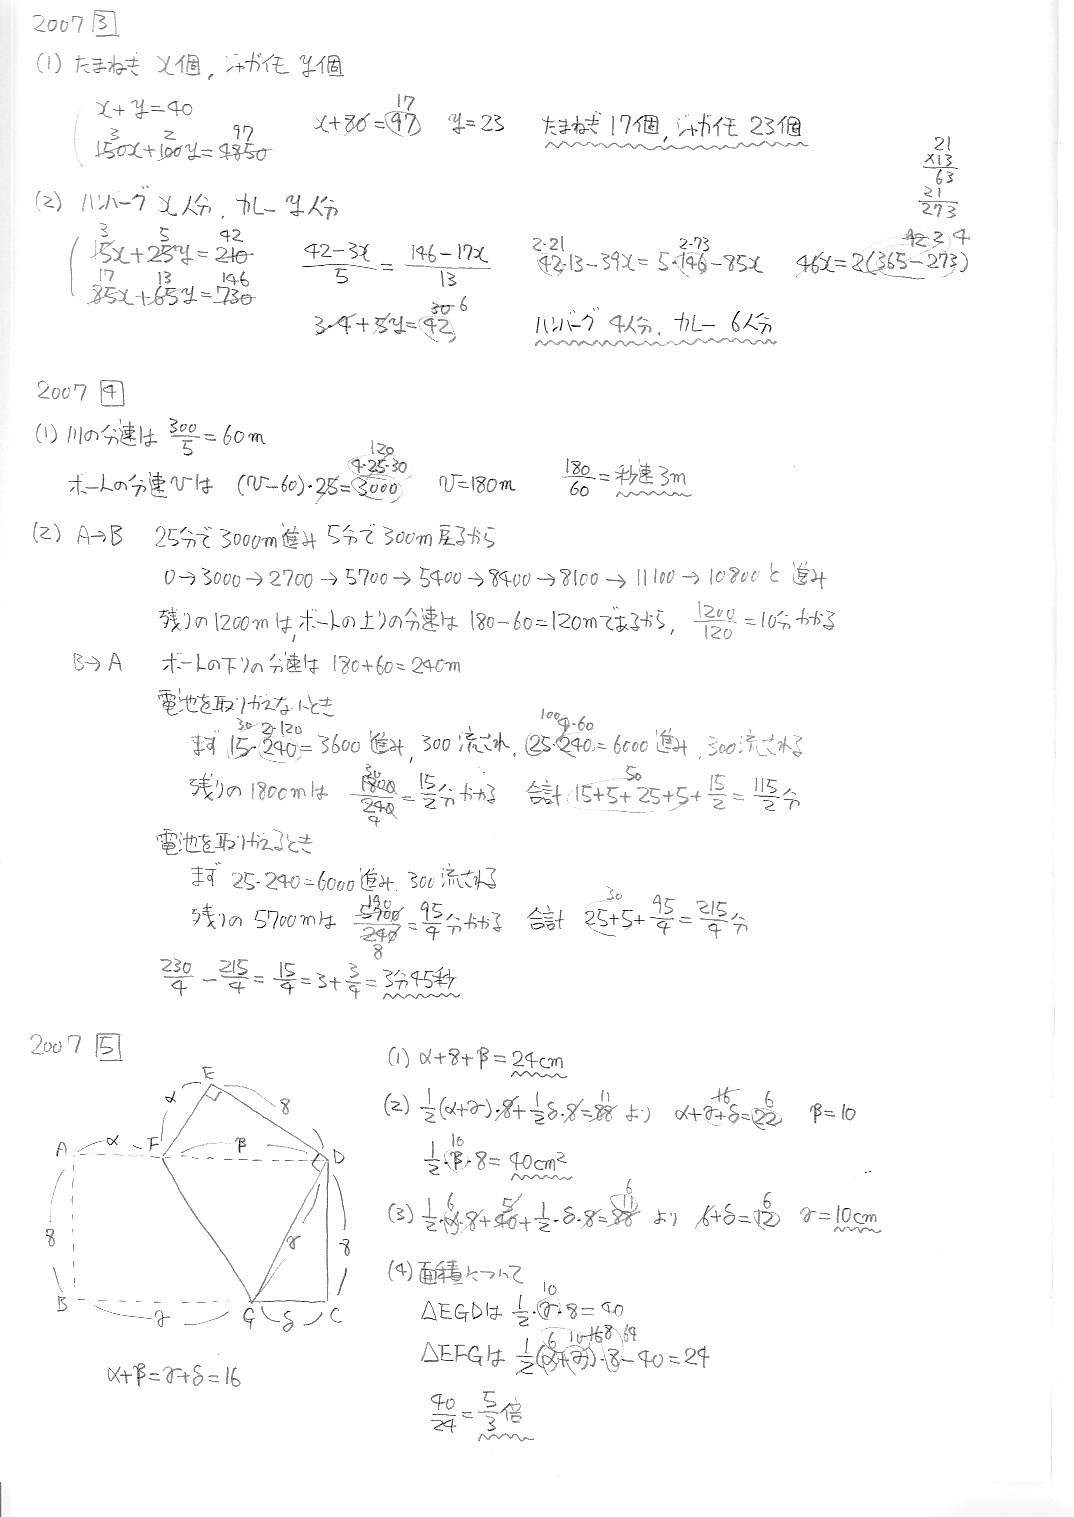 2007 [3]
(1) たまねぎ x個, ジャガイモ y個
x+y=40
3 2 97
150x+100y=4850
17
x+80=97 y=23 たまねぎ17個, ジャガイモ23個
21
×13
63
21
273
(2) ハンバーグ x人分, カレー y人分
3 5 42
15x+25y=210
17 13 146
85x+65y=730
42-3x/5 = 146-17x/13
2・21 2・73
42・13-39x=5・146-85x
92 2 4
46x=2(365-273)
30 6
3・4+5y=42 ハンバーグ 4人分, カレー 6人分
2007 [4]
(1) 川の分速は 300/5=60m
120
4・25・30
ボートの分速vは (v-60)・25=3000 v=180m 180/60=秒速3m
(2) A→B 25分で3000m進み 5分で300m戻るから
0→3000→2700→5700→5400→8400→8100→11100→10800と進み
残りの1200mは,ボートの上りの分速は180-60=120mであるから, 1200/120=10分かかる
B→A ボートの下りの分速は180+60=240m
電池を取りかえないとき
30 2・120 100 4・60
まず 15・240=3600 進み, 300流され, 25・240=6000進み, 300流される
30 50
残りの1800mは 1800/240=15/2分かかる 合計 15+5+25+5+15/2=115/2分
4
電池を取りかえるとき
まず 25・240=6000進み, 300流される
190 30
残りの5700mは 5700/240=95/4分かかる 合計 25+5+95/4=215/4分
8
230/4-215/4=15/4=3+3/4=3分45秒
2007 [5]
E
α 8
A α F β D
8 γ 8
B γ G δ C
α+β=γ+δ=16
(1) α+8+β=24cm
11 16 6
(2) 1/2(α+γ)・8+1/2δ・8=88 より α+γ+δ=22 β=10
10
1/2・β・8=40cm²
6 5 6 11 6
(3) 1/2・α・8+40+1/2・δ・8=88 より 6+δ=12 γ=10cm
(4) 面積について
10
△EGDは 1/2・γ・8=40
6 10 16 8 64
△EFGは 1/2(α+γ)・8-40=24
40/24=5/3倍